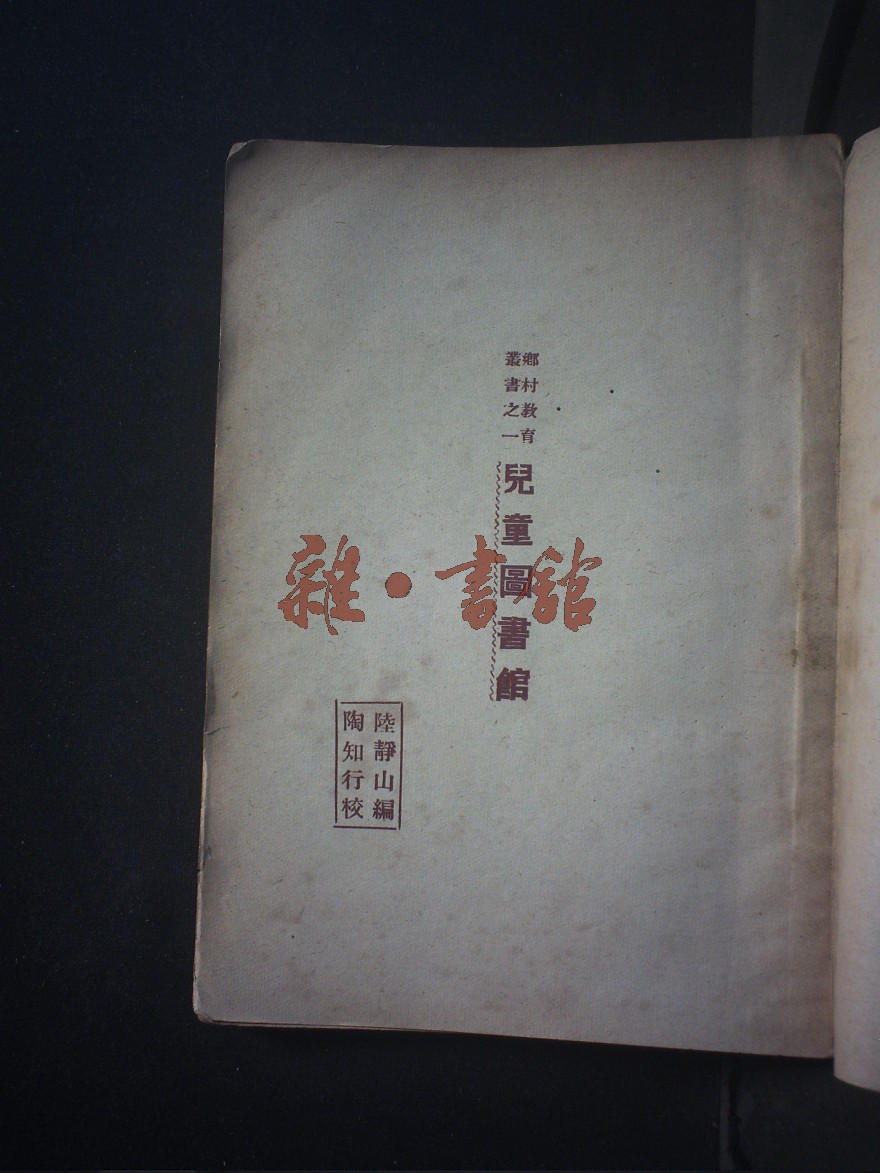 鄉村教育
叢書之一
兒童圖書館
陸靜山編
陶知行校
雜·書館